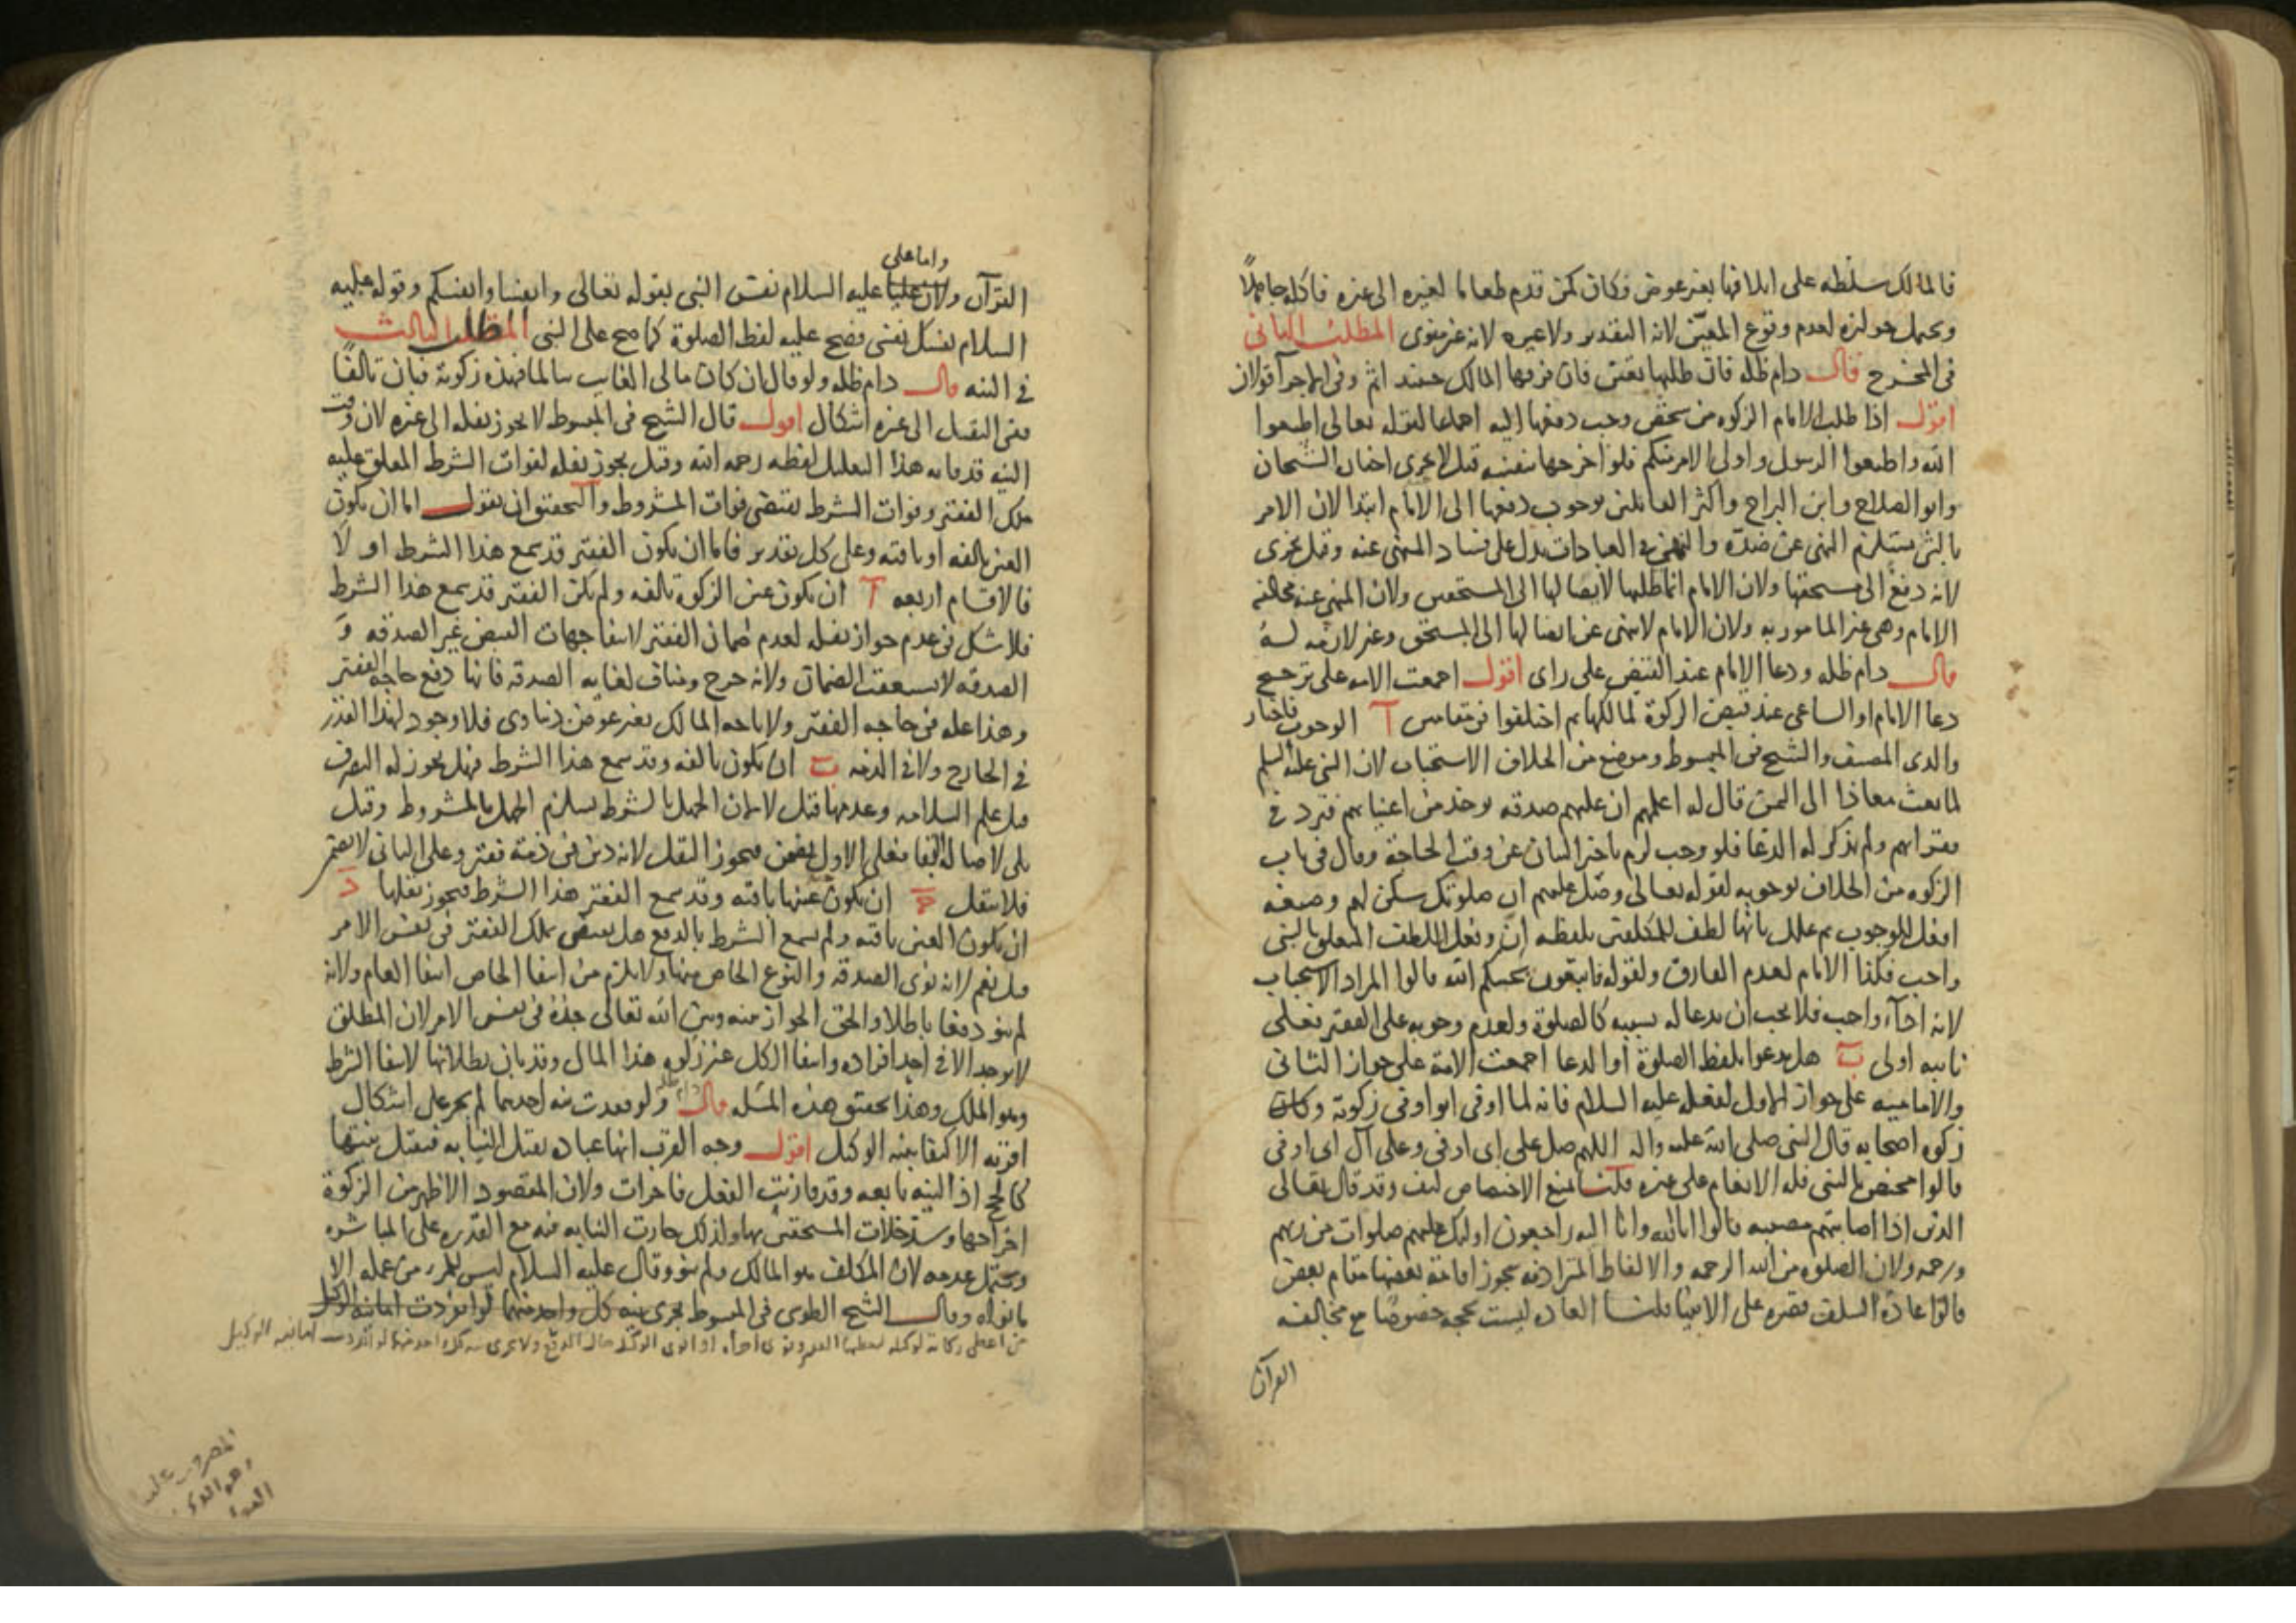 فالمالك سلطه على اتلافها بغير عوض فكان كمن قدم طعاما لغيره الى غيره فاكله جاهلاً
ويحتمل جوازه لعدم وقوع المعيّن لانه التقدير ولا غيره لانه غير منوى المطلب الثانى
فى المخرج قال دام ظله فان طلبها بعث فان فرقها المالك حينئذ اثم وفى الاجزآ قولان
اقول اذا طلب الامام الزكوه من شخص وجب دفعها اليه اجماعا لقوله تعالى اطيعوا
الله واطيعوا الرسول واولى الامر منكم فلو اخرجها بنفسه قيل لا يجزى اختاره الشيخان
وابو الصلاح وابن البراج واكثر القائلين بوجوب دفعها الى الامام ابتدا لان الامر
بالشى يستلزم النهى عن ضدّه والنهى فى العبادات يدل على فساد المنهى عنه وقيل يجزى
لانه دفع الى مستحقها ولان الامام انما طلبها لايصالها الى المستحقين ولان المنهى عنه مخالفة
الامام وهى غير المامور به ولان الامام لا ينهى عن ايصالها الى المستحق وغير لازمه له
قال دام ظله ودعا الامام عند القبض على راى اقول اجمعت الامه على ترجيح
دعا الامام او الساعى عند قبض الزكوة لمالكها ثم اختلفوا فى مقامين آ الوجوب فاختار
والدى المصنف والشيخ فى المبسوط وموضع من الخلاف الاستحباب لان النبى عليه السلم
لما بعث معاذا الى اليمن قال له اعلمهم ان عليهم صدقه توخذ من اغنيائهم فترد فى
فقرائهم ولم يذكر له الدعا فلو وجب لزم تاخير البيان عن وقت الحاجة وقال فى باب
الزكوه من الخلاف بوجوبه لقوله تعالى وصلّ عليهم ان صلوتك سكن لهم وصيغه
افعل للوجوب ثم علل بانها لطف للمكلفين بلفظه انّ وفعل اللطف المتعلق بالنبى
واجب فكذا الامام لعدم الفارق ولقوله فاتبعونى يحببكم الله قالوا المراد الاستحباب
لانه ادآء واجب فلا يجب ان يدعا له بسببه كالصلوة ولعدم وجوبه على الفقير فعلى
نايبه اولى ب هل يدعوا بلفظ الصلوة او الدعا اجمعت الامة على جواز الثانى
والاماميه على جواز الاول لفعله عليه السلام فانه لما اوتى ابو اوفى زكوته وكان
زكوه اصحابه قال النبى صلى الله عليه واله اللهم صل على ابى اوفى وعلى آل ابى اوفى
قالوا مختص بالنبى فله الانعام على غيره قلنا نمنع الاختصاص كيف وقد قال تعالى
الذين اذا اصابتهم مصيبه قالوا انا لله وانا اليه راجعون اولئك عليهم صلوات من ربهم
ورحمه ولان الصلوه من الله الرحمه والالفاظ المترادفه يجوز اقامة بعضها مقام بعض
قالوا عادة السلف قصره على الانبيا قلنا العاده ليست بحجه خصوصًا مع مخالفه
القرآن
واما على
القرآن ولان عليا عليه السلام نفس النبى بقوله تعالى وانفسنا وانفسكم وقوله عليه
السلام نفسك نفسى فصح عليه لفظ الصلوة كما صح على النبى المطلب الثالث
فى النيه قال دام ظله ولو قال ان كان مالى الغايب سالما فهذه زكوته فبان تالفًا
ففى النقل الى غيره اشكال اقول قال الشيخ فى المبسوط لا يجوز نقله الى غيره لان وقت
النيه قد فاته هذا التعليل لفظه رحمه الله وقيل يجوز نقله لفوات الشرط المعلق عليه
ملك الفقير وفوات الشرط يقتضى فوات المشروط والتحقيق ان نقول اما ان يكون
العين تالفه او باقيه وعلى كل تقدير فاما ان يكون الفقير قد سمع هذا الشرط او لا
فالاقسام اربعه آ ان يكون عين الزكوة تالفه ولم يكن الفقير قد سمع هذا الشرط
فلا شك فى عدم جواز نقله لعدم ضمان الفقير لانتفا جهات القبض غير الصدقه و
الصدقه لا تستعقب الضمان ولانه حرج ومناف لغايه الصدقه فانها دفع حاجه الفقير
وهذا عله فى حاجه الفقير ولاباحه المالك بغير عوض دنياوى فلا وجود لهذا القدر
فى الخارج ولا فى الذمه ب ان يكون تالفه وقد سمع هذا الشرط فهل يجوز له التصرف
قبل علم السلامه وعدمها قيل لا لان الجهل بالشرط يستلزم الجهل بالمشروط وقيل
بلى لاصالة البقا فعلى الاول يضمن فيجوز النقل لانه دين فى ذمة فقير وعلى الثانى لا يضمن
فلا ينقل ج ان يكون عينها باقيه وقد سمع الفقير هذا الشرط فيجوز نقلها د
ان يكون العين باقيه ولم يسمع الشرط بالدفع هل يقتضى ملك الفقير فى نفس الامر
قيل نعم لانه نوى الصدقه والنوع الخاص منها ولا يلزم من انتفا الخاص انتفا العام ولانه
لم ينو دفعا باطلا والحق الجواز بينه وبين الله تعالى اخذه فى نفس الامر لان المطلق
لا يوجد الا فى احد افراده وانتفا الكل غير زكوه هذا المال وقد بان بطلانها لانتفا الشرط
وهو الملك وهذا تحقيق هذه المسله قال دام ظله ولو فقدت نيه احدهما لم يجز على اشكال
اقربه الاكتفا بنيه الوكيل اقول وجه القرب انها عباده تقبل النيابه فتقبل نيتها
كالحج اذ النيه تابعه وقد قارنت الفعل فاجزات ولان المقصود الاظهر من الزكوة
اخراجها وسد خلات المستحقين بها ولذلك جازت النيابه فيه مع القدره على المباشره
ويحتمل عدمه لان المكلف هو المالك ولم ينو وقال عليه السلام ليس للمرء من عمله الا
ما نواه وقال الشيخ الطوسى فى المبسوط يجزى نيه كل واحد منهما لو انفردت امانيه الوكيل